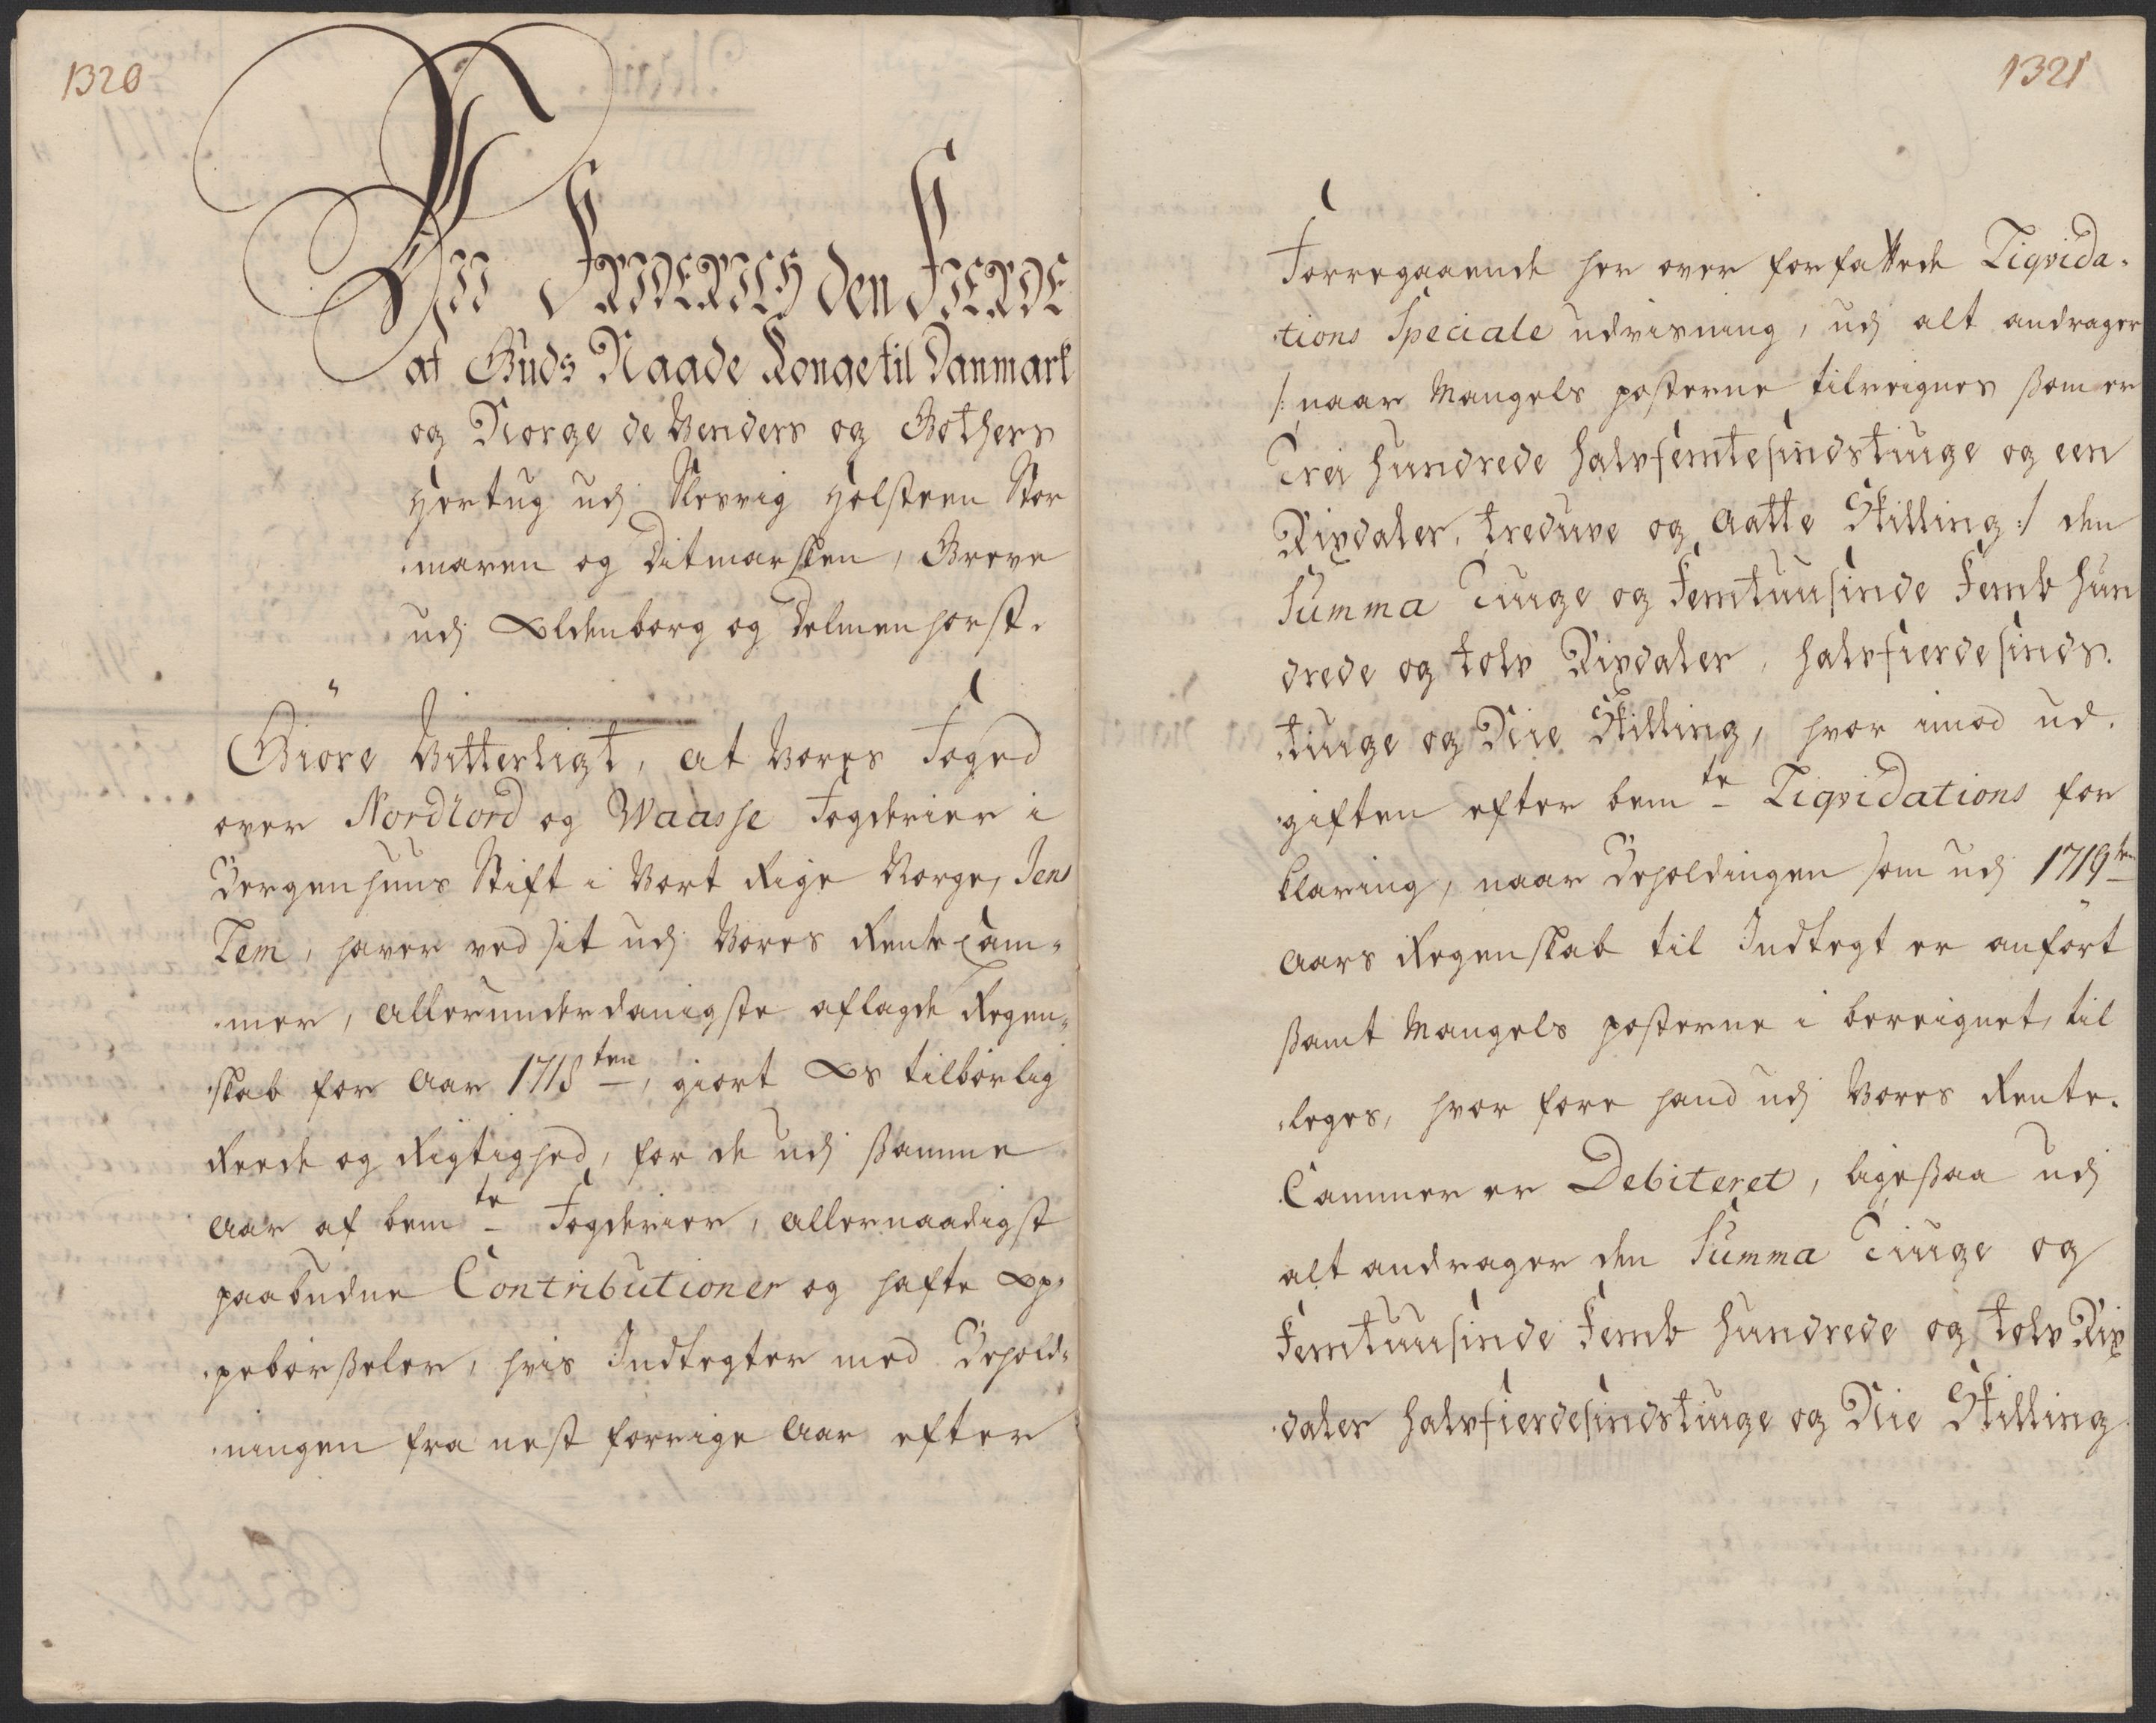 1320
Wii FRIDERICH den FIERDE
af Guds Naade Konge til Danmark
og Norge de Venders og Gothers
Hertug udj Slesvig Holsteen Stor
maren og Ditmarsken, Greve
udj Oldenborg og Delmenhorst.
Giöre Vitterligt, at Vores Foged
over Nordlord og Waasse Fogderier i
Bergenhuus Stift i Vort Rige Norge, Jens
Lem, haver ved sit udj Vores Rente Cam-
mer, allerunderdanigste aflagde Regen-
skab for Aar 1718ten, giort Os tilbörlig
Reede og Rigtighed, for de udj ßamme
Aar af bemte Fogderier, allernaadigst
paabudne Contributioner og hafte Op-
pebörßeler, hvis Indtegter med Behold-
ningen fra nest forrige Aar efter
1321
Forregaaende her over forfattede Liqvida-
tions Speciale udvisning, udj alt andrager
/: naar Mangels posterne tilreignes ßom er
Trei Hundrede halvfemtesindstiuge og een
Rixdaler, treduve og Aatte Skilling :/ den
Summa Tiuge og Femtuusinde Femb Hun
drede og tolv Rixdaler, halvfierdesinds-
tiuge og Nie Skilling, hvor imod ud-
giften efter bemte Liqvidations for
klaring, naar Beholdingen som udj 1719ten
Aars Regenskab til Indtegt er anfört
ßamt Mangels posterne i bereignet, til
leges, hvor fore hand udj Vores Rente-
Cammer er Debiteret, ligeßaa udj
alt andrager den Summa Tiuge og
Femtuusinde Femb Hundrede og tolv Rix
daler halvfierdesindstiuge og Nie Skilling